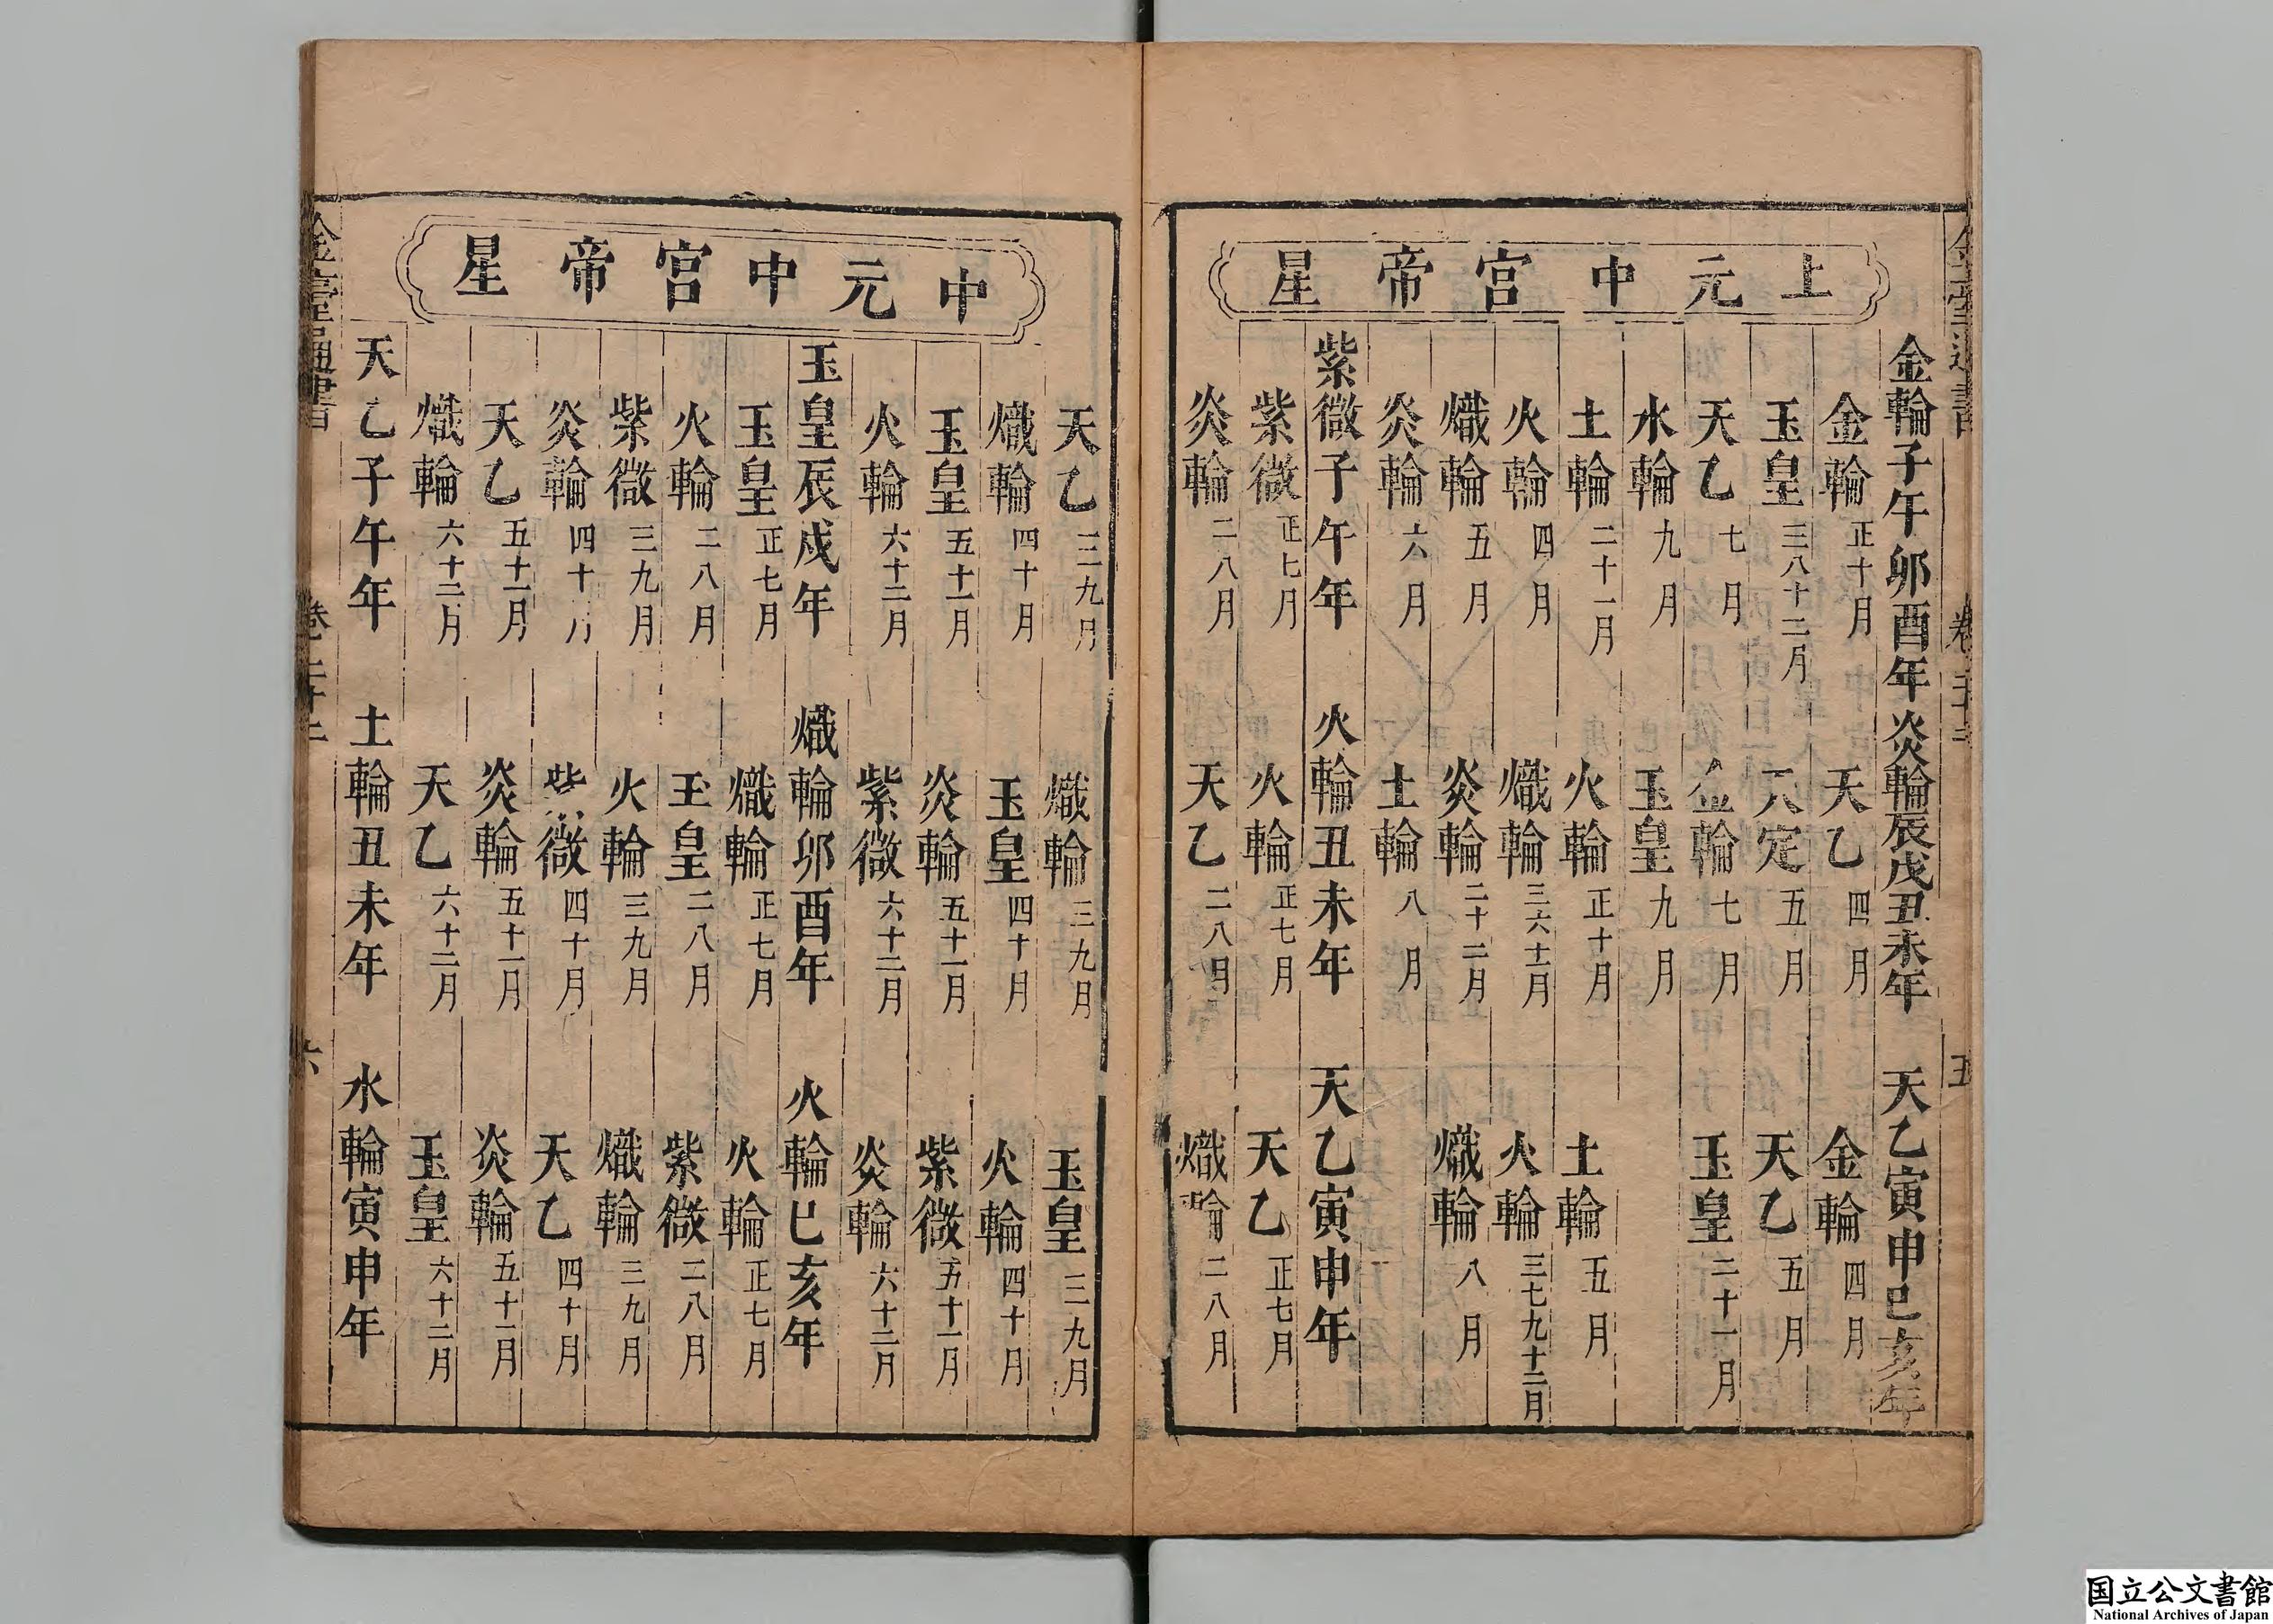 上元中宮帝星
金輪子午卯酉年 炎輪辰戌丑未年 天乙寅申巳亥年
金輪正十月 天乙四月 金輪四月
玉皇三八十二月 天定五月 天乙五月
天乙七月 金輪七月 玉皇二十一月
水輪九月 玉皇九月
土輪二十一月 火輪正十月 土輪五月
火輪四月 熾輪三六十一月 火輪三七九十二月
熾輪五月 炎輪二十二月 熾輪八月
炎輪六月 土輪八月
紫微子午年 火輪丑未年 天乙寅申年
紫微正七月 火輪正七月 天乙正七月
炎輪二八月 天乙二八月 熾輪二八月
五
中元中宮帝星
天乙三九月 熾輪三九月 玉皇三九月
熾輪四十月 玉皇四十月 火輪四十月
玉皇五十一月 炎輪五十一月 紫微五十一月
火輪六十二月 紫微六十二月 炎輪六十二月
玉皇辰戌年 熾輪卯酉年 火輪巳亥年
玉皇正七月 熾輪正七月 火輪正七月
火輪二八月 玉皇二八月 紫微二八月
紫微三九月 火輪三九月 熾輪三九月
炎輪四十月 紫微四十月 天乙四十月
天乙五十一月 炎輪五十一月 炎輪五十一月
熾輪六十二月 天乙六十二月 玉皇六十二月
天乙子午年 土輪丑未年 水輪寅申年
六
国立公文書館
National Archives of Japan